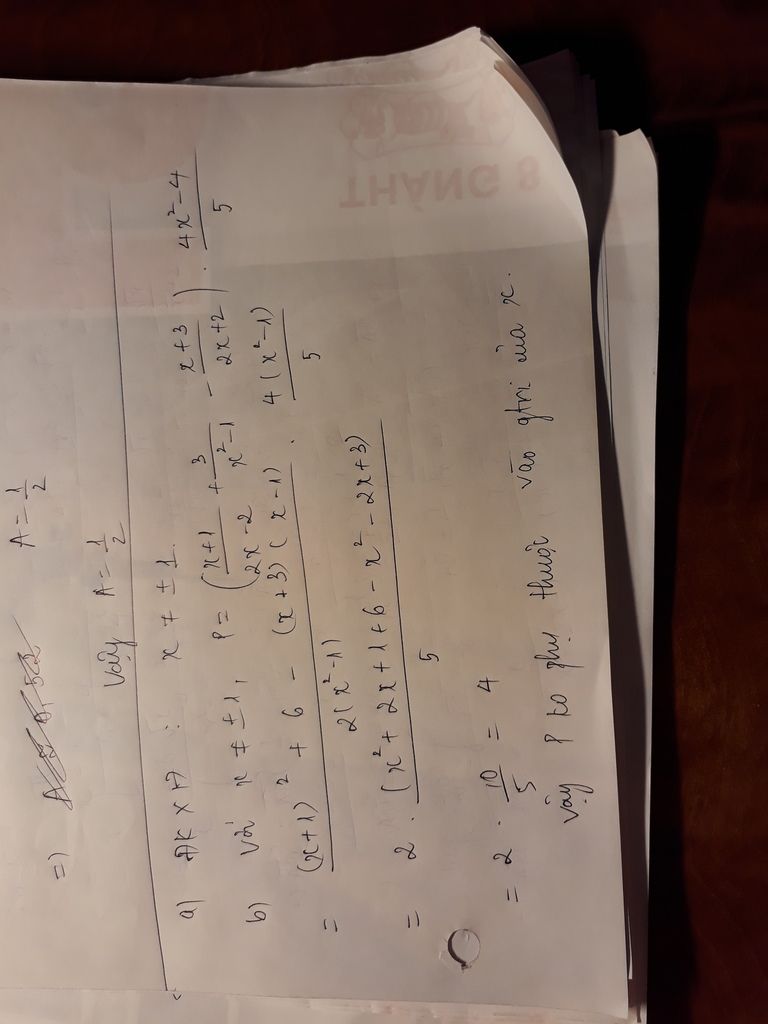 =>
A = 1/2
Vậy A = 1/2
a) ĐKXĐ : x ≠ ± 1.
b) Với x ≠ ± 1, P = ( (x+1)/(2x-2) + 3/(x²-1) - (x+3)/(2x+2) ) . (4x²-4)/5
= ((x+1)² + 6 - (x+3)(x-1))/(2(x²-1)) . (4(x²-1))/5
= 2 . (x² + 2x + 1 + 6 - x² - 2x + 3)/5
= 2 . 10/5 = 4
Vậy P ko phụ thuộc vào gtri của x.
THÁNG 8